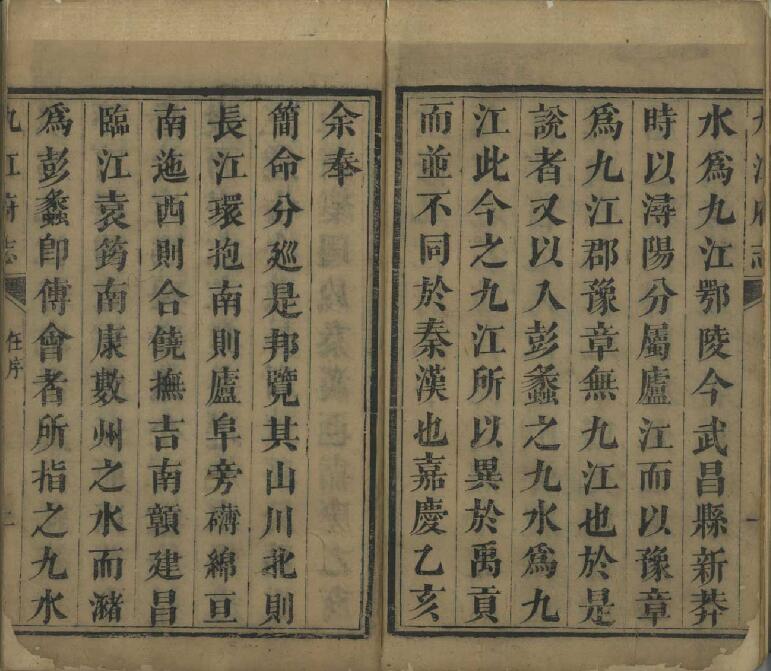 九江府志
水爲九江鄂陵今武昌縣新莽
時以潯陽分屬廬江而以豫章
爲九江郡豫章無九江也於是
說者又以入彭蠡之九水爲九
江此今之九江所以異於禹貢
而並不同於秦漢也嘉慶乙亥
余奉
簡命分廵是邦覽其山川北則
長江環抱南則廬阜旁礴綿亘
南迤西則合饒撫吉南贛建昌
臨江袁筠南康數州之水而瀦
爲彭蠡卽傅會者所指之九水
九江府志
任序
二